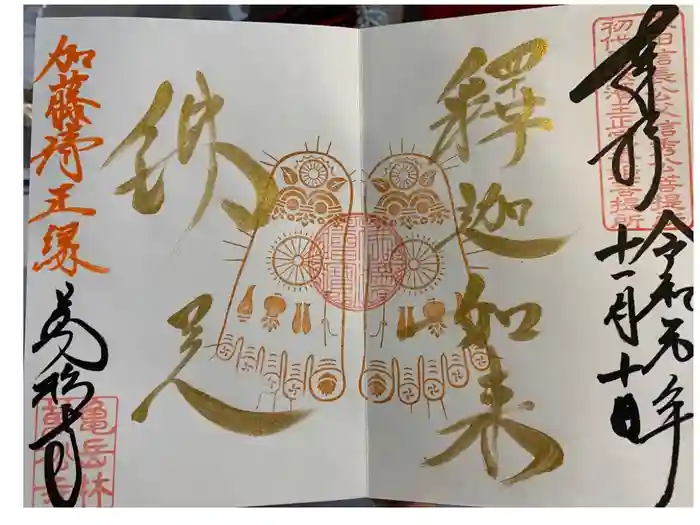 奉拝
令和元年
十一月十日
田信長公父信秀公菩提
釋迦如来
佛足
加藤清正縁
萬松寺
亀岳林
萬松寺